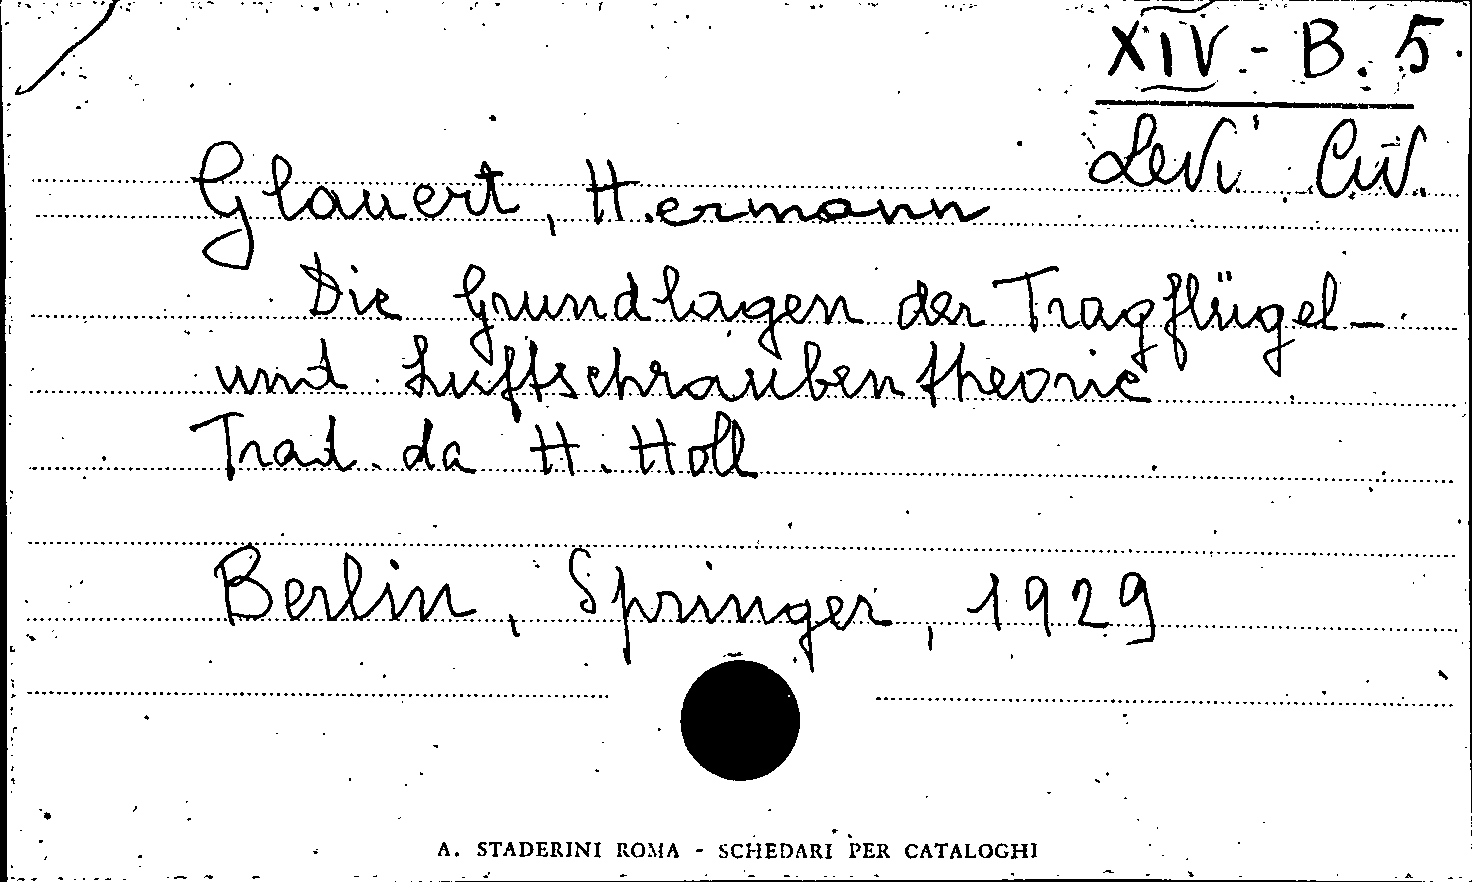 XIV - B. 5.
Levi Civ.
Glauert, H.ermann
Die Grundlagen der Tragflügel-
und Luftschraubentheorie
Trad. da H. Holl
Berlin, Springer, 1929
A. STADERINI ROMA - SCHEDARI PER CATALOGHI